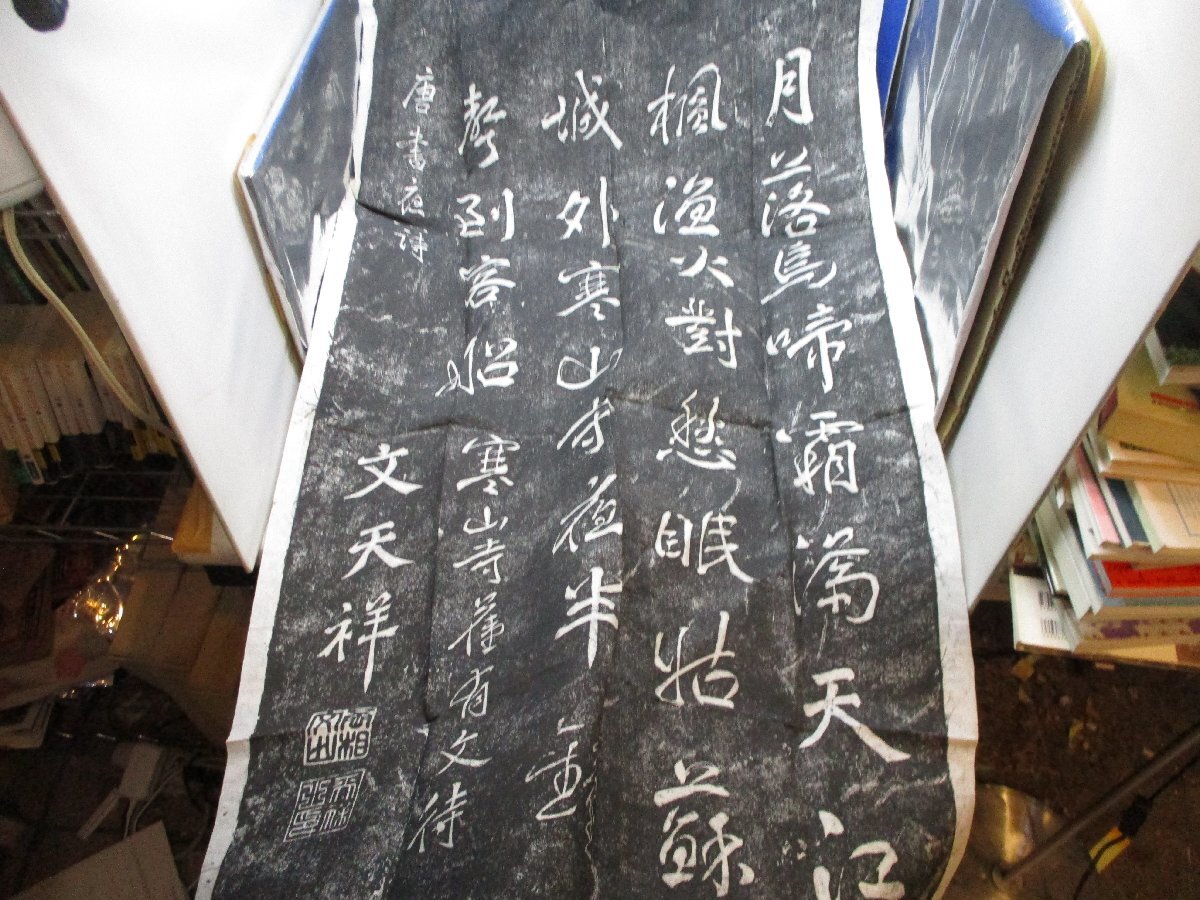 月落烏啼霜滿天江
楓漁火對愁眠姑蘇
城外寒山寺夜半鐘
聲到客船 寒山寺舊有文待
唐書夜詩
文天祥